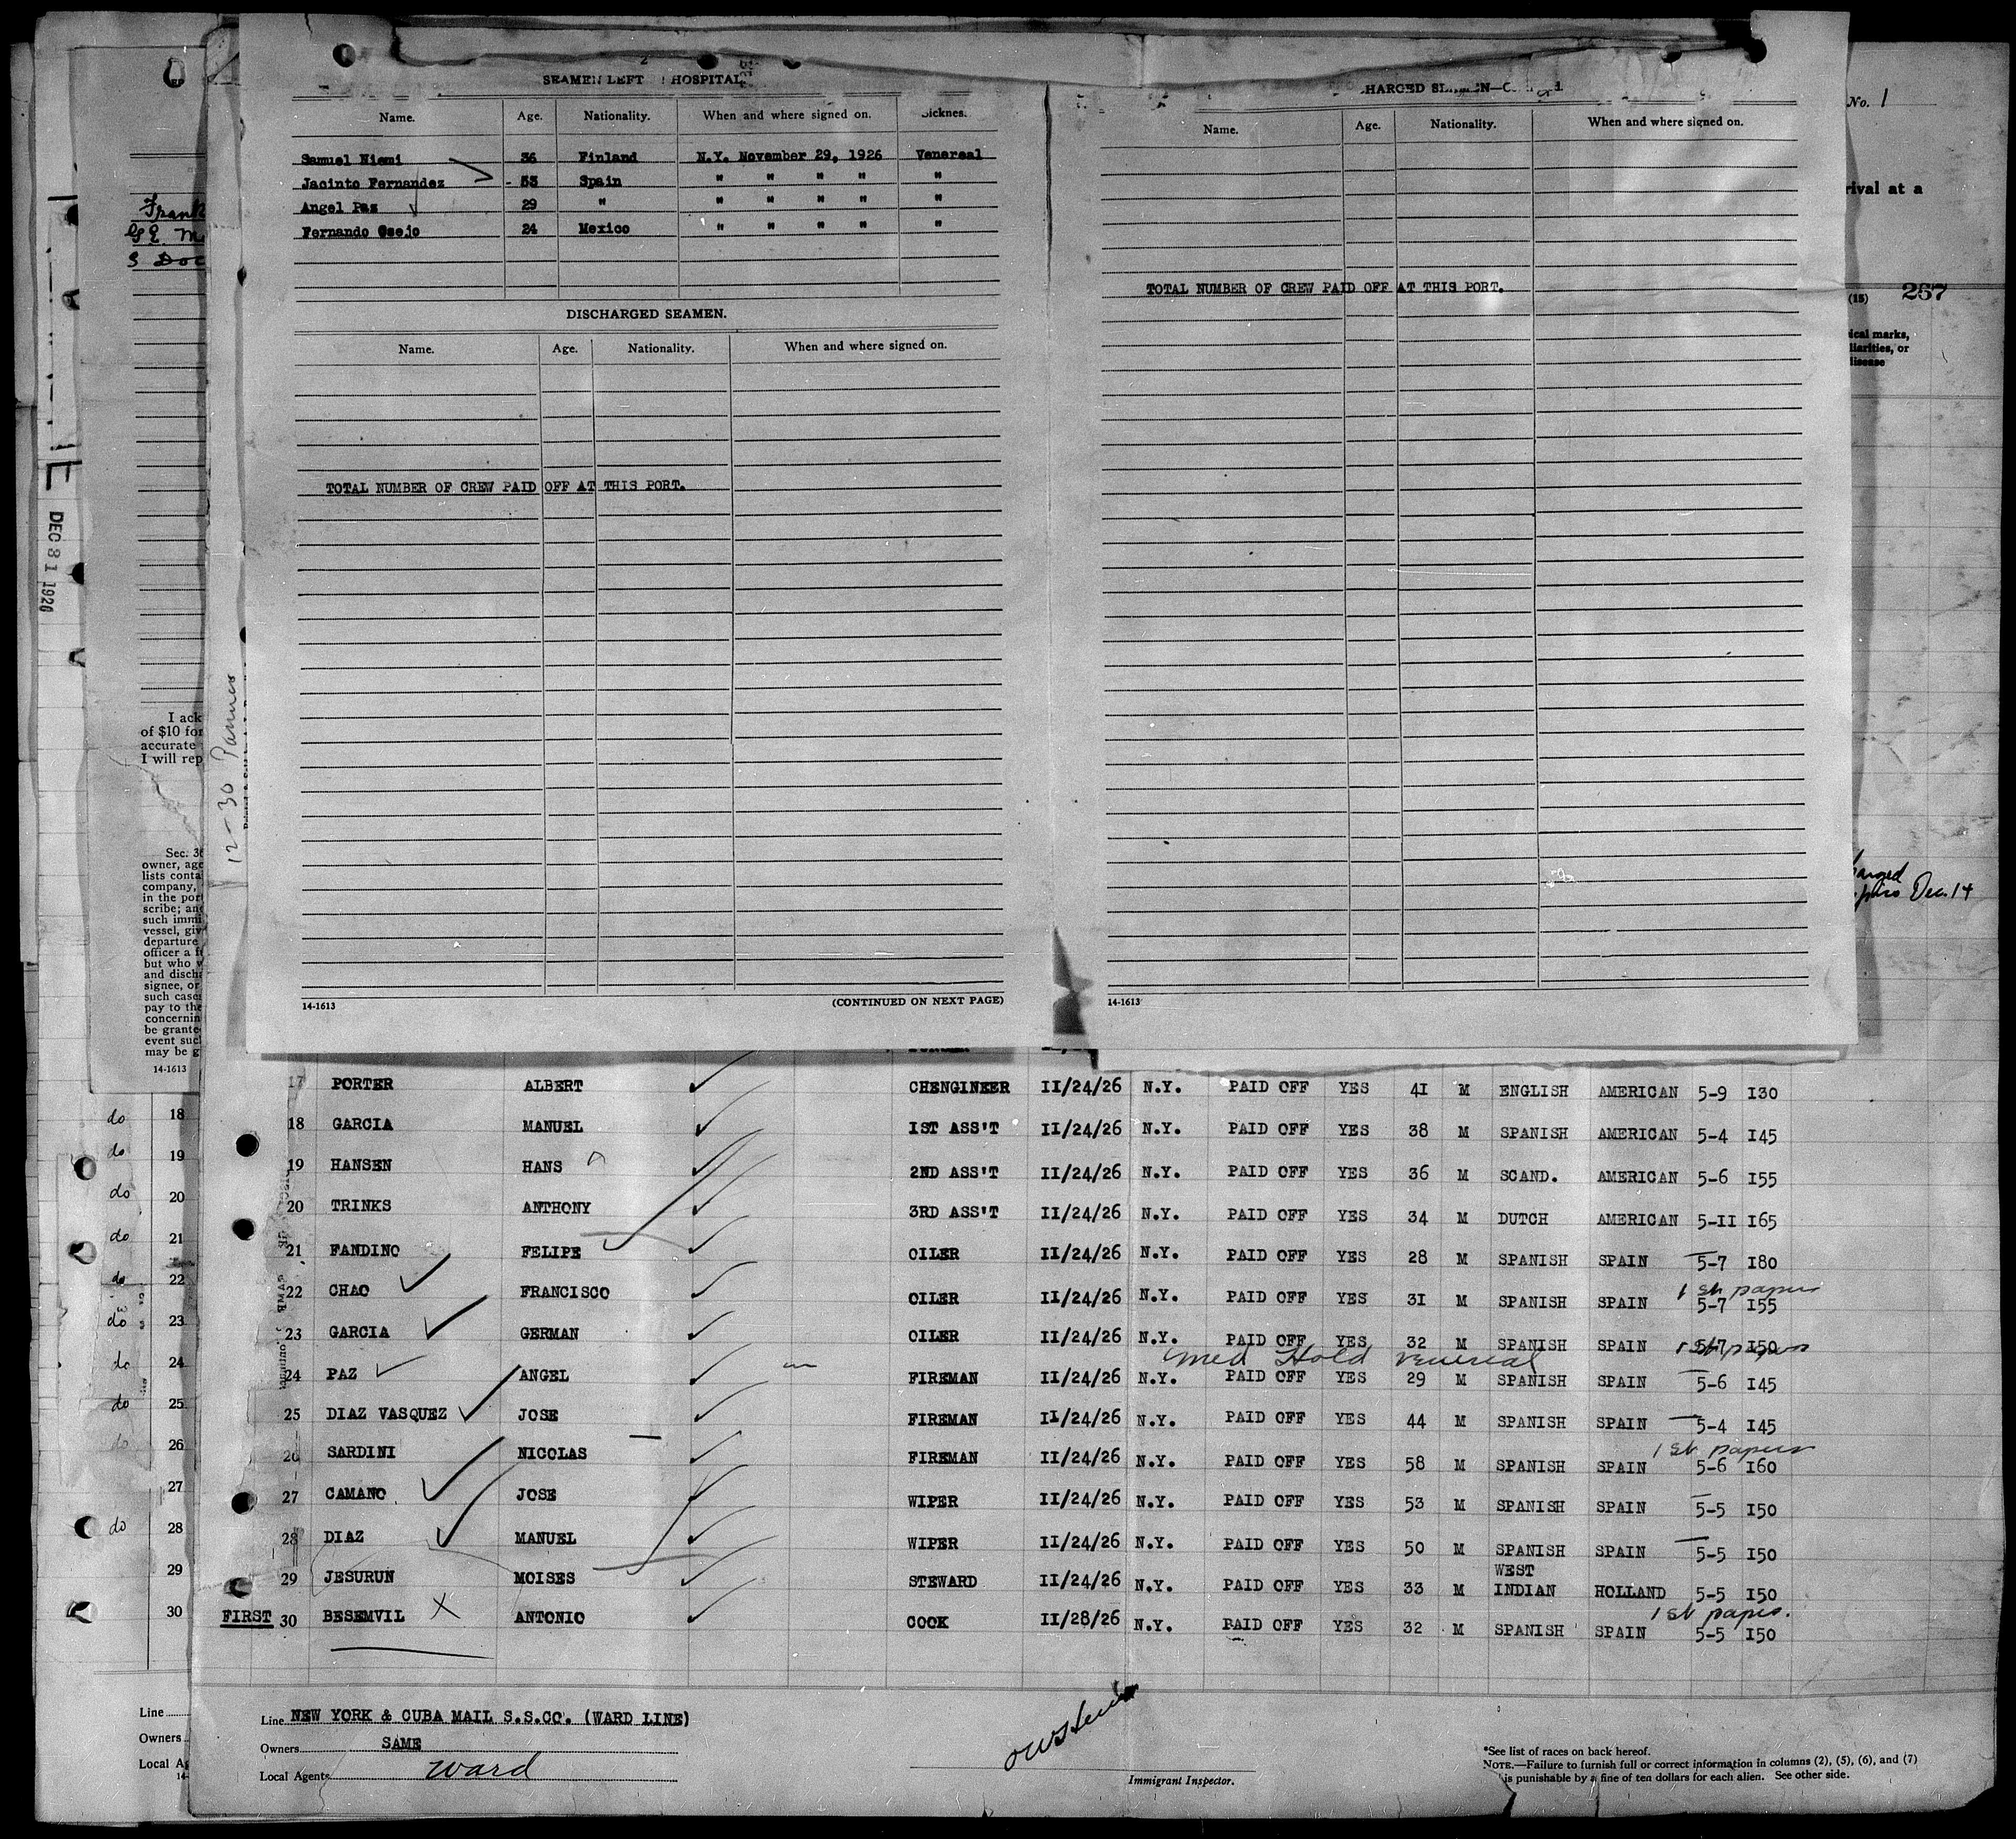 2
SEAMEN LEFT HOSPITAL
Name. Age. Nationality. When and where signed on. Sicknes.
Samuel Niemi 36 Finland N.Y. November 29, 1926 Venereal
Jacinto Fernandez 53 Spain " " " " "
Angel Paz 29 " " " " " "
Fernando Osejo 24 Mexico " " " " "
DISCHARGED SEAMEN.
Name. Age. Nationality. When and where signed on.
TOTAL NUMBER OF CREW PAID OFF AT THIS PORT.
14-1613 (CONTINUED ON NEXT PAGE)
HARGED
Name. Age. Nationality. When and where signed on.
TOTAL NUMBER OF CREW PAID OFF AT THIS PORT.
14-1613
No. 1
rival at a
(15) 257
ical marks,
liarities, or
disease
Dec. 14
Frank
G E M
S Doc
DEC 31 1926
12-30
I ack
of $10 for
accurate
I will rep
Sec. 36
owner, age
lists conta
company,
in the por
scribe; and
such immi
vessel, giv
departure
officer a f
but who w
and disch
signee, or
such cases
pay to the
concernin
be grante
event suc
may be g
14-1613
do 18
do 19
do 20
do 21
do 22
do 23
do 24
do 25
do 26
27
do 28
29
30
17 PORTER ALBERT CHENGINEER 11/24/26 N.Y. PAID OFF YES 41 M ENGLISH AMERICAN 5-9 130
18 GARCIA MANUEL 1ST ASS'T 11/24/26 N.Y. PAID OFF YES 38 M SPANISH AMERICAN 5-4 145
19 HANSEN HANS 2ND ASS'T 11/24/26 N.Y. PAID OFF YES 36 M SCAND. AMERICAN 5-6 155
20 TRINKS ANTHONY 3RD ASS'T 11/24/26 N.Y. PAID OFF YES 34 M DUTCH AMERICAN 5-11 165
21 FANDINO FELIPE OILER 11/24/26 N.Y. PAID OFF YES 28 M SPANISH SPAIN 5-7 180
1st papers
22 CHAO FRANCISCO OILER 11/24/26 N.Y. PAID OFF YES 31 M SPANISH SPAIN 5-7 155
23 GARCIA GERMAN OILER 11/24/26 N.Y. PAID OFF YES 32 M SPANISH SPAIN 5-7 150 1st papers
Med Hold venereal
24 PAZ ANGEL FIREMAN 11/24/26 N.Y. PAID OFF YES 29 M SPANISH SPAIN 5-6 145
25 DIAZ VASQUEZ JOSE FIREMAN 11/24/26 N.Y. PAID OFF YES 44 M SPANISH SPAIN 5-4 145
1st papers
26 SARDINI NICOLAS FIREMAN 11/24/26 N.Y. PAID OFF YES 58 M SPANISH SPAIN 5-6 160
27 CAMANO JOSE WIPER 11/24/26 N.Y. PAID OFF YES 53 M SPANISH SPAIN 5-5 150
28 DIAZ MANUEL WIPER 11/24/26 N.Y. PAID OFF YES 50 M SPANISH SPAIN 5-5 150
29 JESURUN MOISES STEWARD 11/24/26 N.Y. PAID OFF YES 33 M WEST INDIAN HOLLAND 5-5 150
1st papers.
FIRST 30 BESEMVIL ANTONIO COOK 11/28/26 N.Y. PAID OFF YES 32 M SPANISH SPAIN 5-5 150
Line
Owners
Local Ag
14-
Line NEW YORK & CUBA MAIL S.S.CO. (WARD LINE)
Owners SAME
Local Agents Ward
Immigrant Inspector.
*See list of races on back hereof.
NOTE.—Failure to furnish full or correct information in columns (2), (5), (6), and (7)
is punishable by a fine of ten dollars for each alien. See other side.